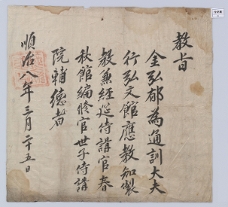 教旨
金弘郁為通訓大夫
行弘文館應教知製
教兼經筵侍講官春
秋館編修官世子侍講
院輔德者
順治八年三月二十五日